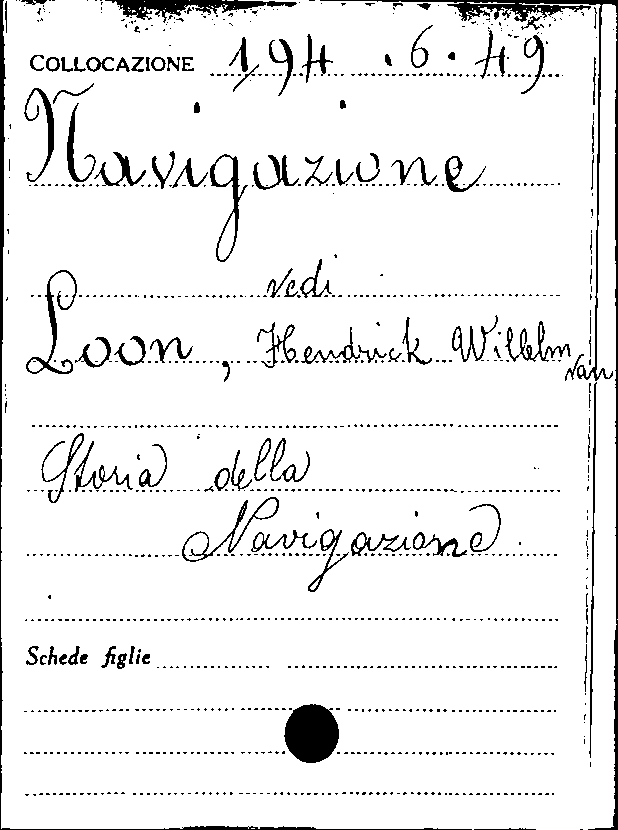 COLLOCAZIONE 194.6.49
Navigazione
vedi
Loon, Hendrick Willelm van
Storia della
Navigazione
Schede figlie